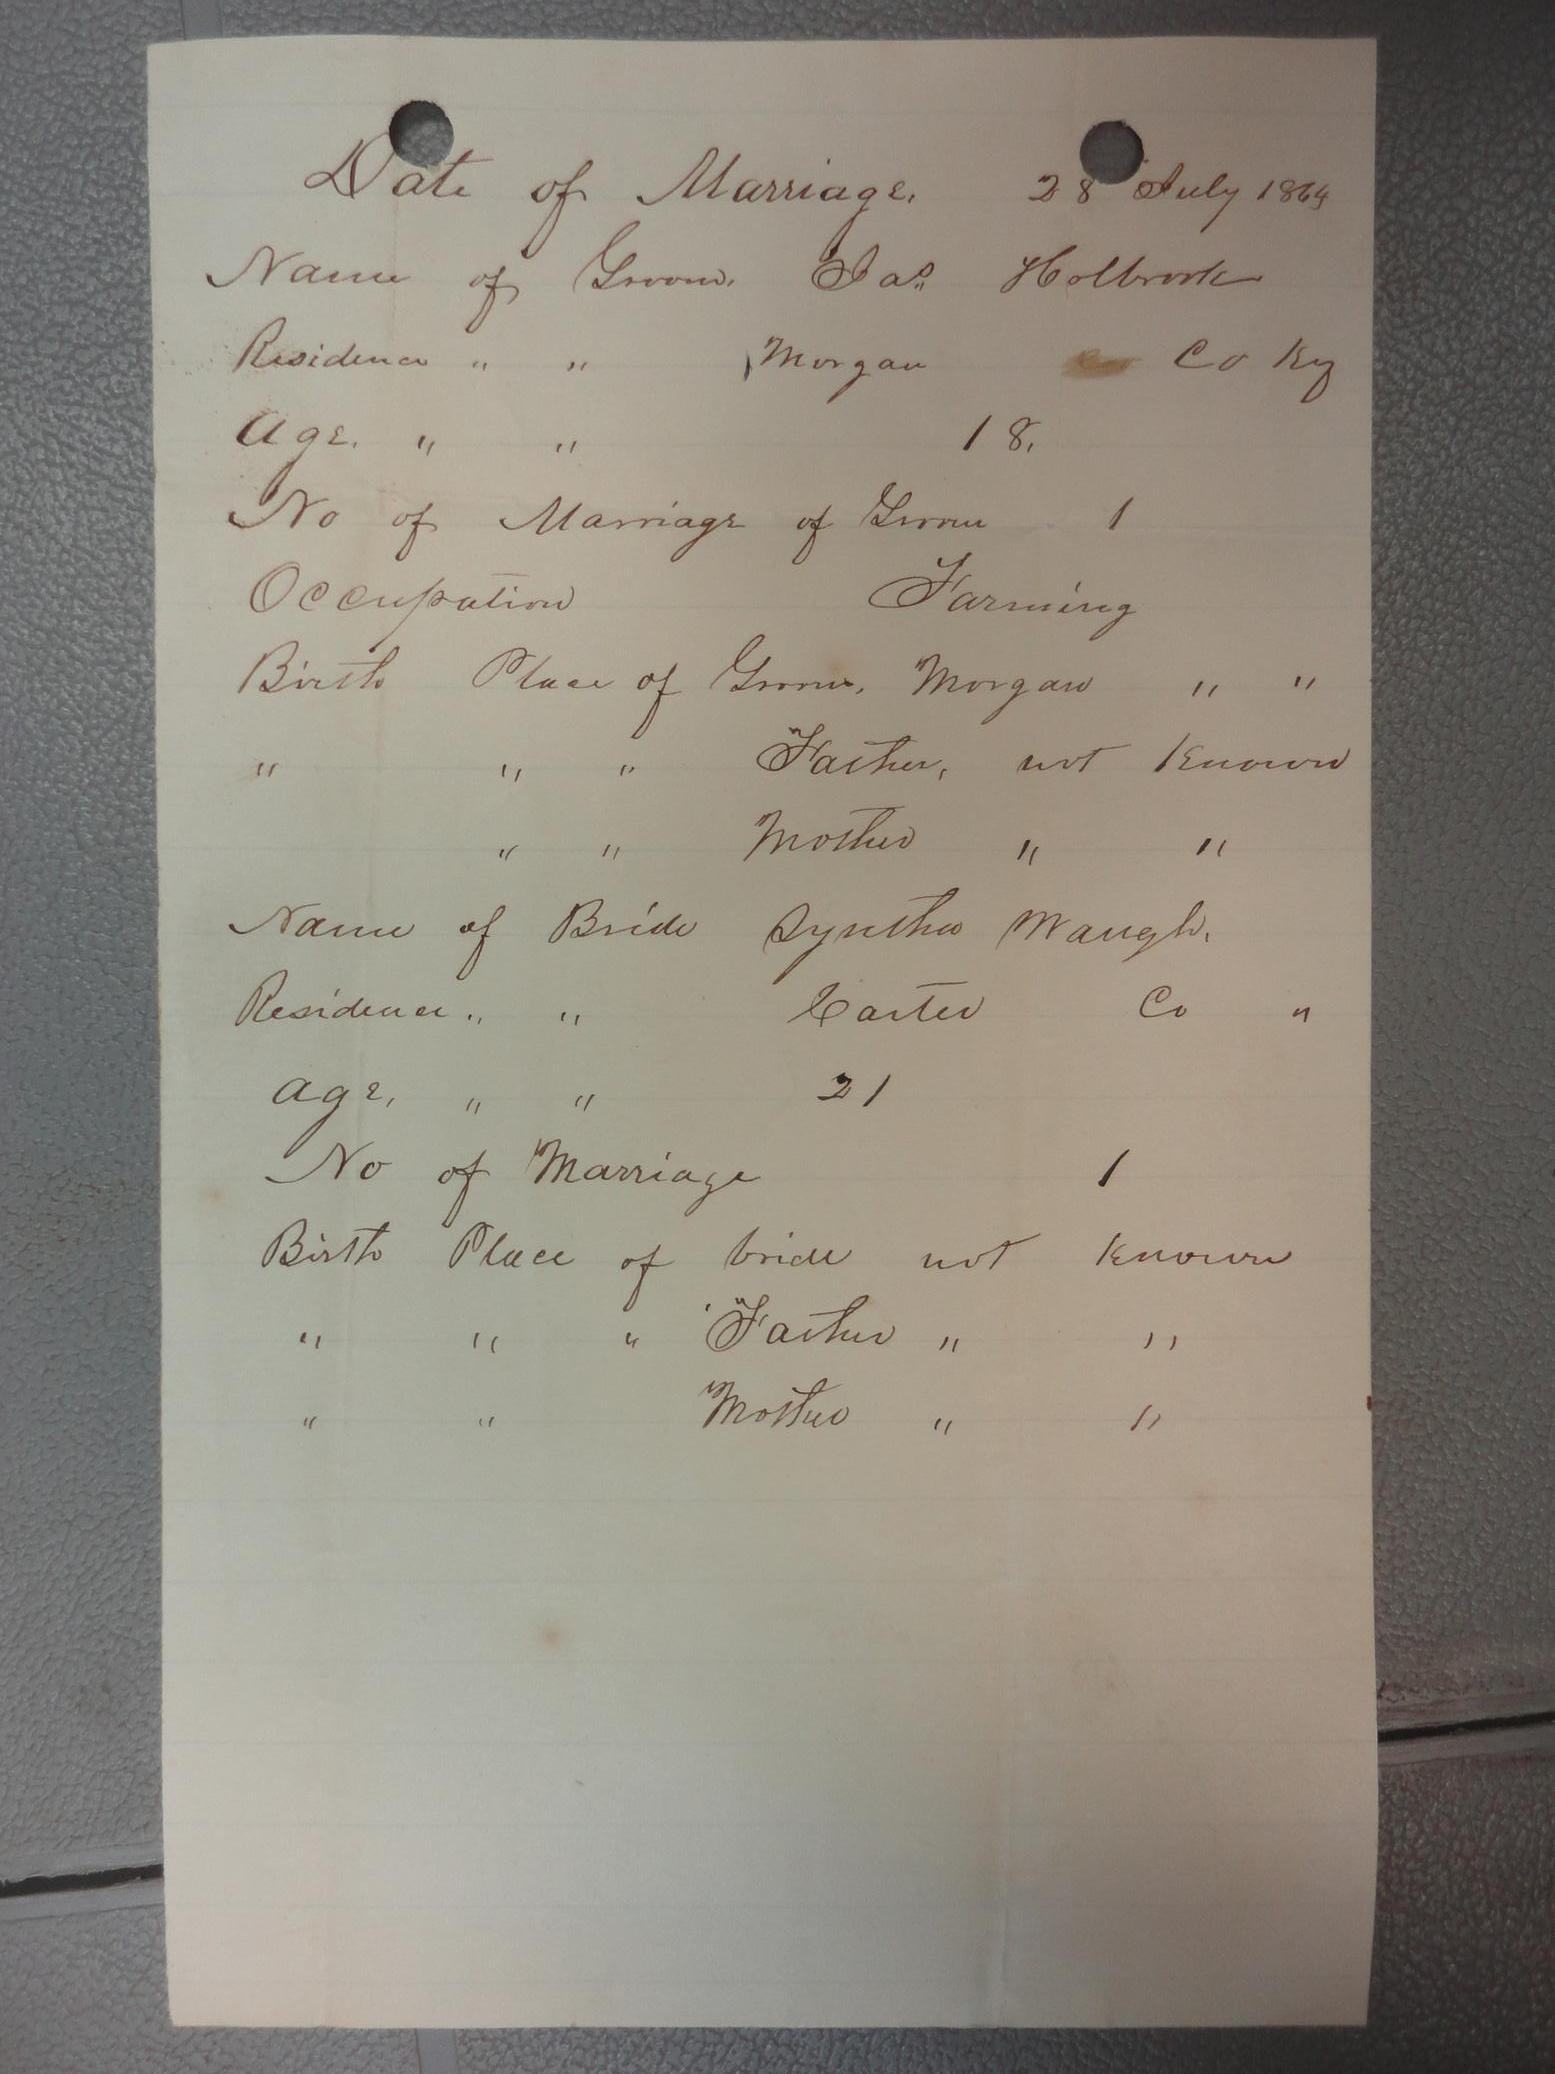 Date of Marriage. 28 July 1864
Name of Groom. Jas. Holbrook
Residence " " Morgan Co Ky
Age. " " 18.
No of Marriage of Groom 1
Occupation Farming
Birth Place of Groom. Morgan " "
" " " Father, not Known
" " Mother " "
Name of Bride Syntha Waugh.
Residence " " Carter Co "
age, " " 21
No of Marriage 1
Birth Place of bride not Known
" " " Father " "
" " Mother " "